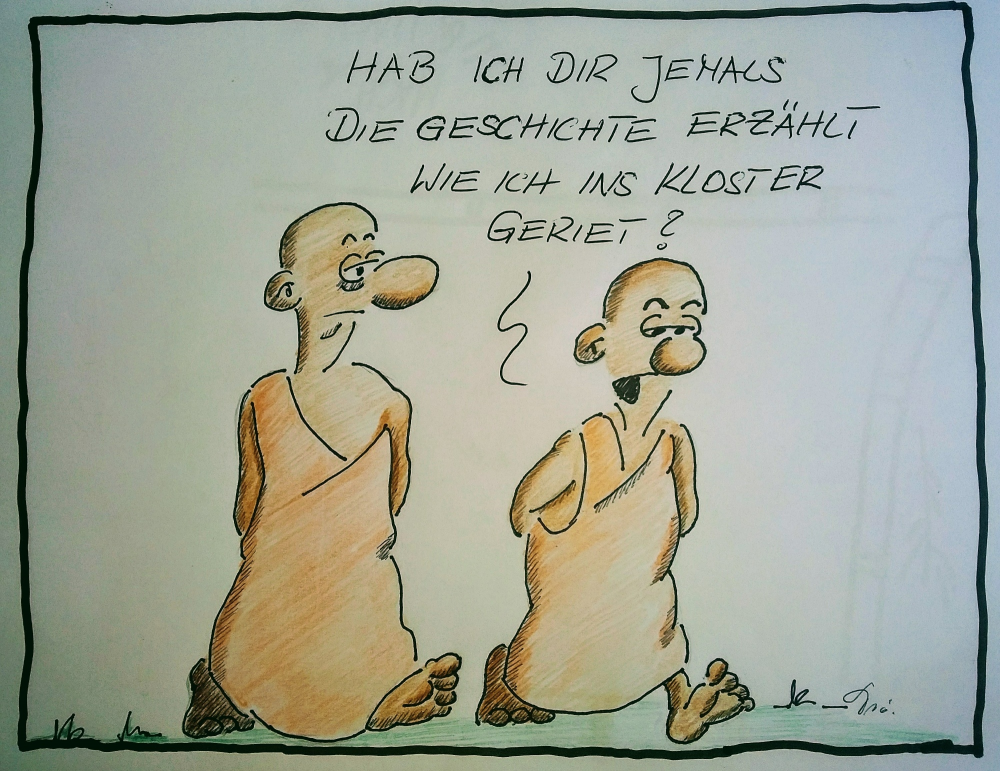 HAB ICH DIR JEMALS
DIE GESCHICHTE ERZÄHLT
WIE ICH INS KLOSTER
GERIET?